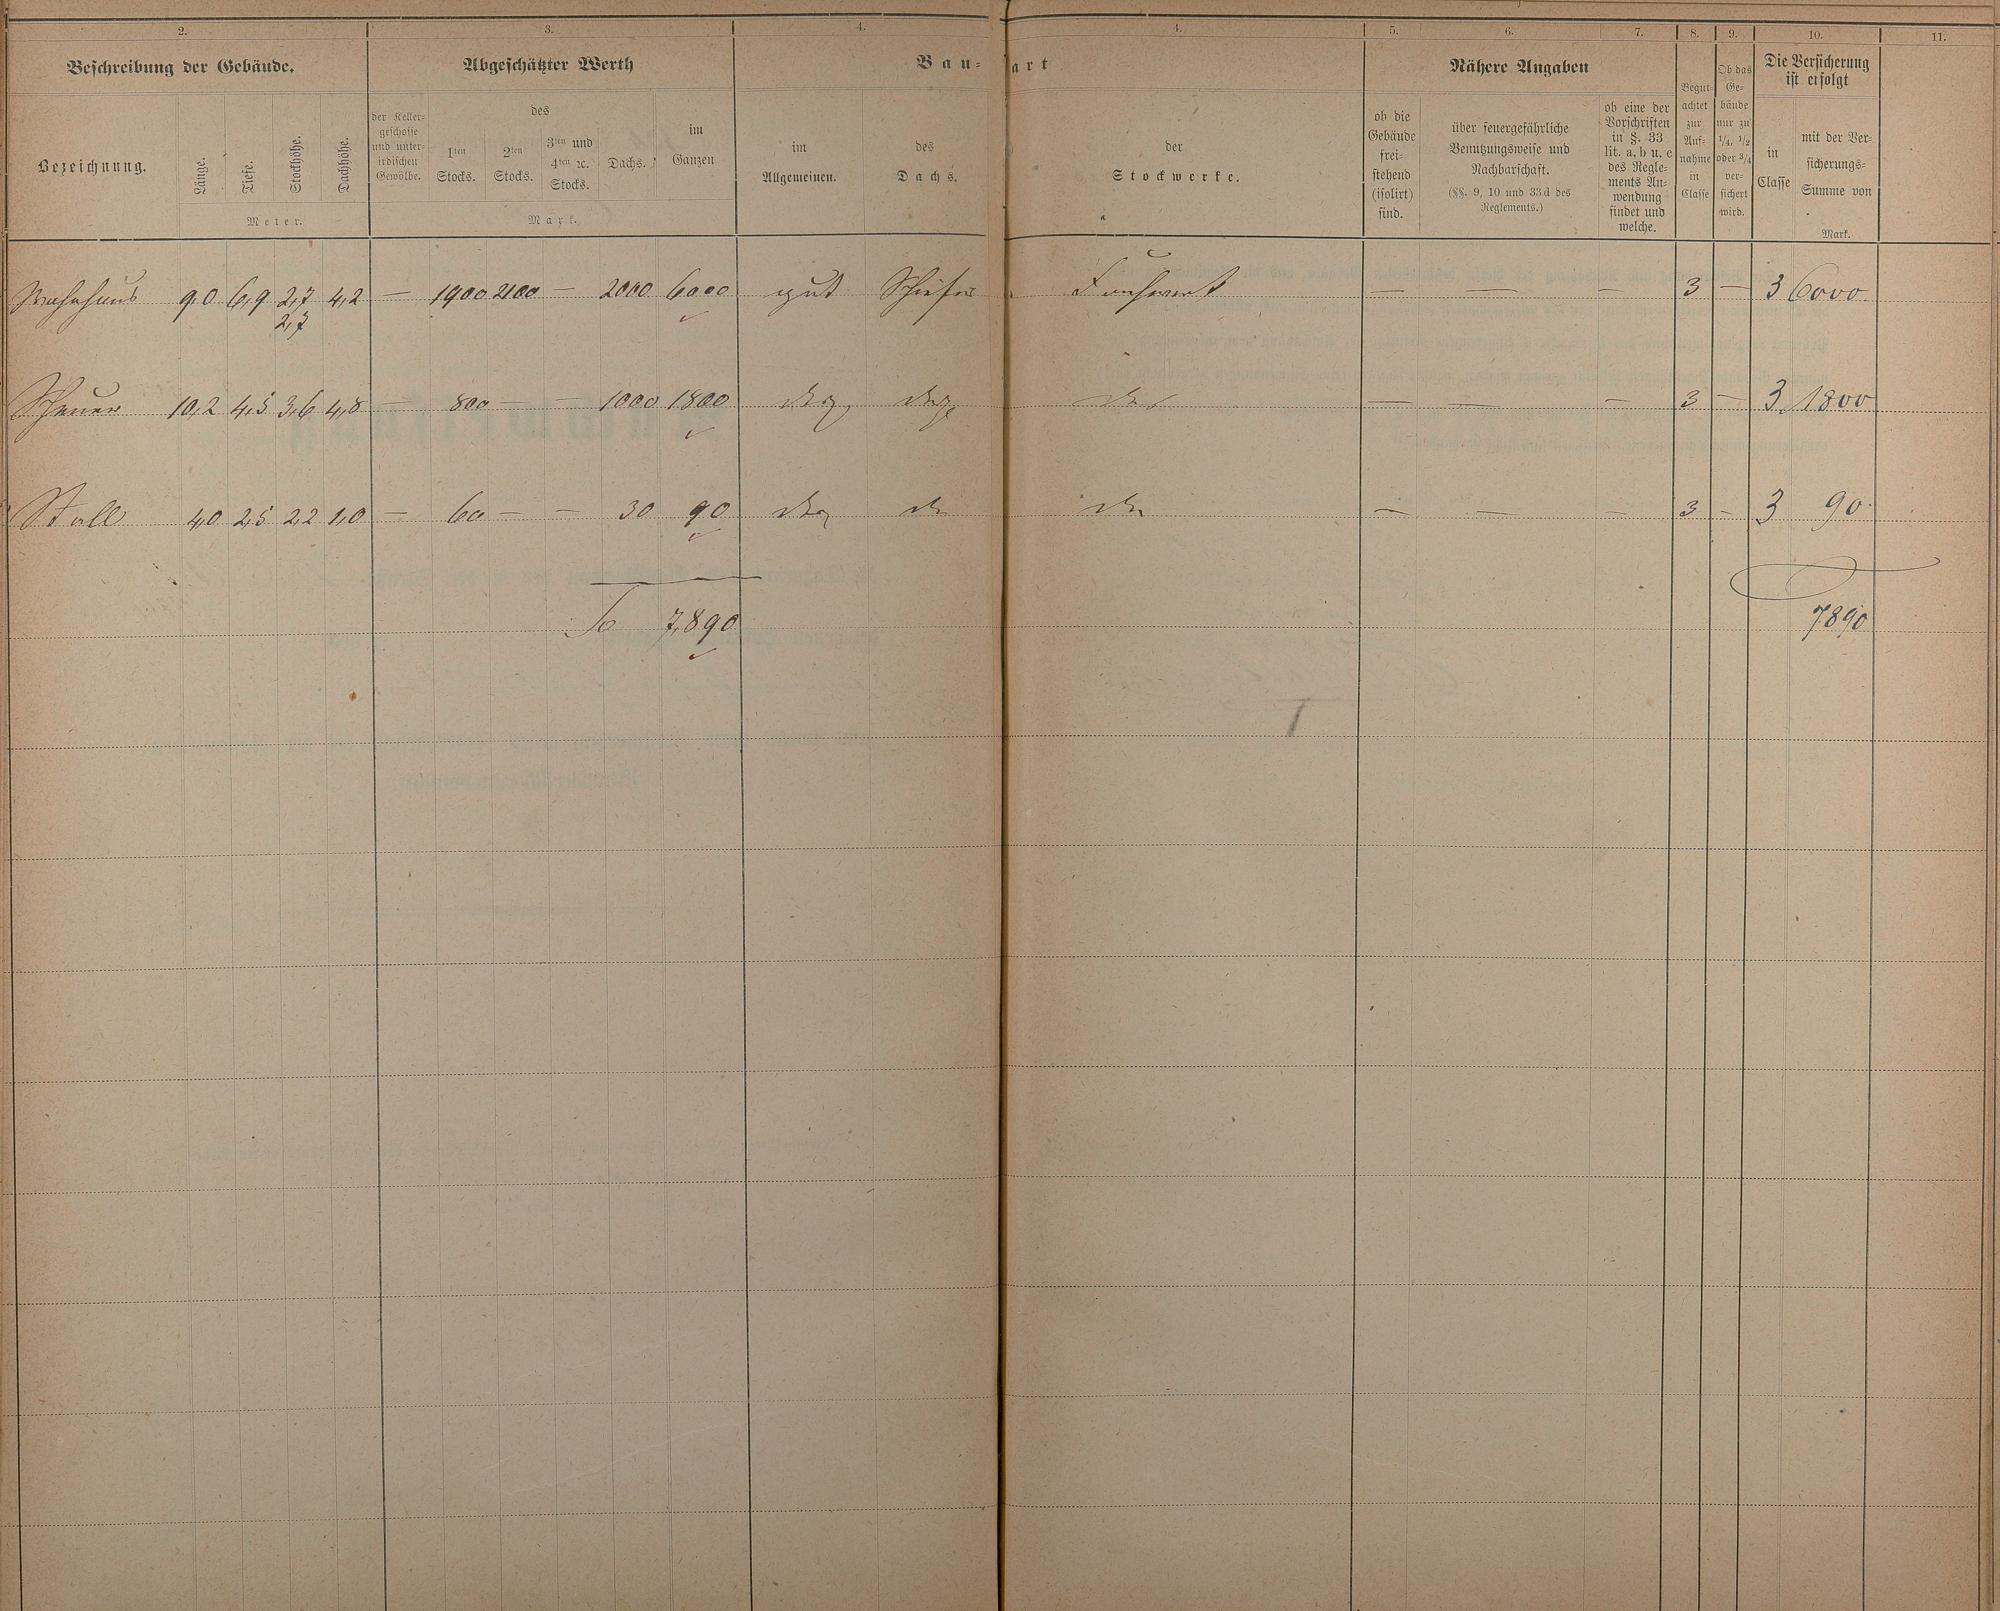 2. 3. 4. 4. 5. 6. 7. 8. 9. 10. 11.
Beschreibung der Gebäude. Abgeschätzter Werth Bau- art Nähere Angaben
Die Versicherung
ist erfolgt
Bezeichnung.
Länge. Tiefe. Stockhöhe. Dachhöhe.
Meter.
der Keller-
geschosse
und unter-
irdischen
Gewölbe.
des
1ten
Stocks.
2ten
Stocks.
3ten und
4ten ꝛc.
Stocks.
Dachs.
im
Ganzen
Mark.
im
Allgemeinen.
des
Dachs.
der
Stockwerke.
ob die
Gebäude
frei-
stehend
(isolirt)
sind.
über feuergefährliche
Benutzungsweise und
Nachbarschaft.
(§§. 9, 10 und 33d des
Reglements.)
ob eine der
Vorschriften
in §. 33
lit. a, b u. c
des Regle-
ments An-
wendung
findet und
welche.
Begut-
achtet
zur
Auf-
nahme
in
Classe
Ob das
Ge-
bäude
nur zu
1/4, 1/2
oder 3/4
ver-
sichert
wird.
in
Classe
mit der Ver-
sicherungs-
Summe von
Mark.
Wohnhaus 9,0 6,9 2,7 4,2 — 1900 2100 — 2000 6000 gut Schiefer Fachwerk — — — 3 — 3 6000
2,7
Scheuer 10,2 4,5 3,6 4,8 — 800 — — 1000 1800 — — — 3 — 3 1800
Stall 4,0 2,5 2,2 1,0 — 60 — — 30 90 — — — 3 — 3 90
7,890 7890